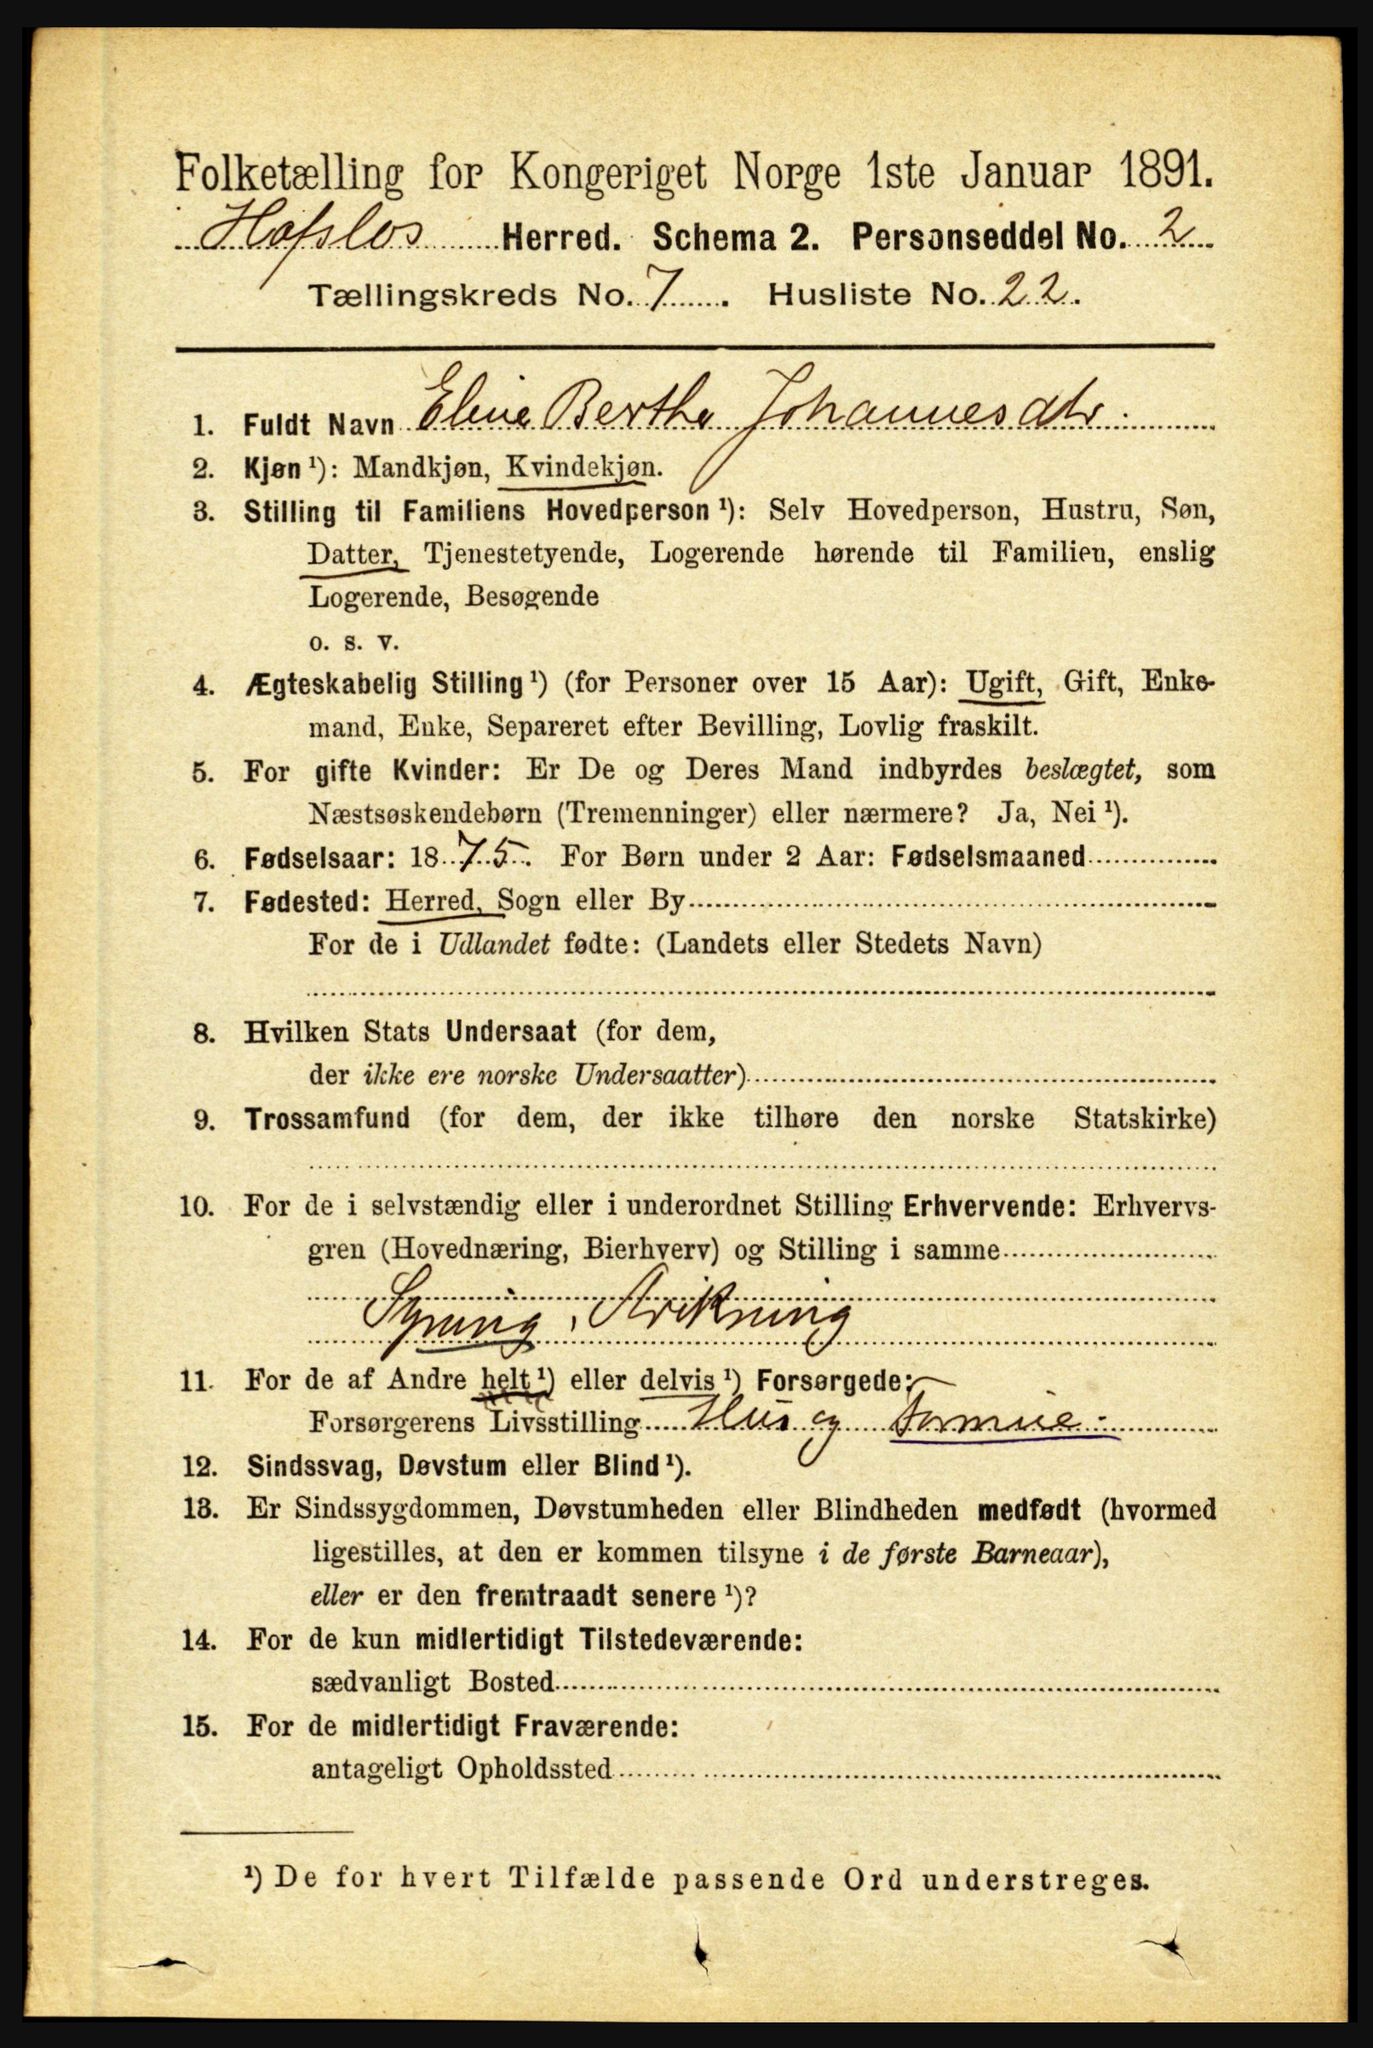 Folketælling for Kongeriget Norge 1ste Januar 1891.
Hafslos Herred. Schema 2. Personseddel No. 2
Tællingskreds No. 7. Husliste No. 22.
1. Fuldt Navn Eline Bertha Johannesdtr.
2. Kjøn¹): Mandkjøn, Kvindekjøn.
3. Stilling til Familiens Hovedperson¹): Selv Hovedperson, Hustru, Søn,
Datter, Tjenestetyende, Logerende hørende til Familien, enslig
Logerende, Besøgende
o. s. v.
4. Ægteskabelig Stilling¹) (for Personer over 15 Aar): Ugift, Gift, Enke-
mand, Enke, Separeret efter Bevilling, Lovlig fraskilt.
5. For gifte Kvinder: Er De og Deres Mand indbyrdes beslægtet, som
Næstsøskendebørn (Tremenninger) eller nærmere? Ja, Nei¹).
6. Fødselsaar: 1875. For Børn under 2 Aar: Fødselsmaaned
7. Fødested: Herred, Sogn eller By
For de i Udlandet fødte: (Landets eller Stedets Navn)
8. Hvilken Stats Undersaat (for dem,
der ikke ere norske Undersaatter)
9. Trossamfund (for dem, der ikke tilhøre den norske Statskirke)
10. For de i selvstændig eller i underordnet Stilling Erhvervende: Erhvervs-
gren (Hovednæring, Bierhverv) og Stilling i samme
Syning, Strikning
11. For de af Andre helt¹) eller delvis¹) Forsørgede:
Forsørgerens Livsstilling Hus og Formue.
12. Sindssvag, Døvstum eller Blind¹).
13. Er Sindssygdommen, Døvstumheden eller Blindheden medfødt (hvormed
ligestilles, at den er kommen tilsyne i de første Barneaar),
eller er den fremtraadt senere¹)?
14. For de kun midlertidigt Tilstedeværende:
sædvanligt Bosted
15. For de midlertidigt Fraværende:
antageligt Opholdssted
¹) De for hvert Tilfælde passende Ord understreges.